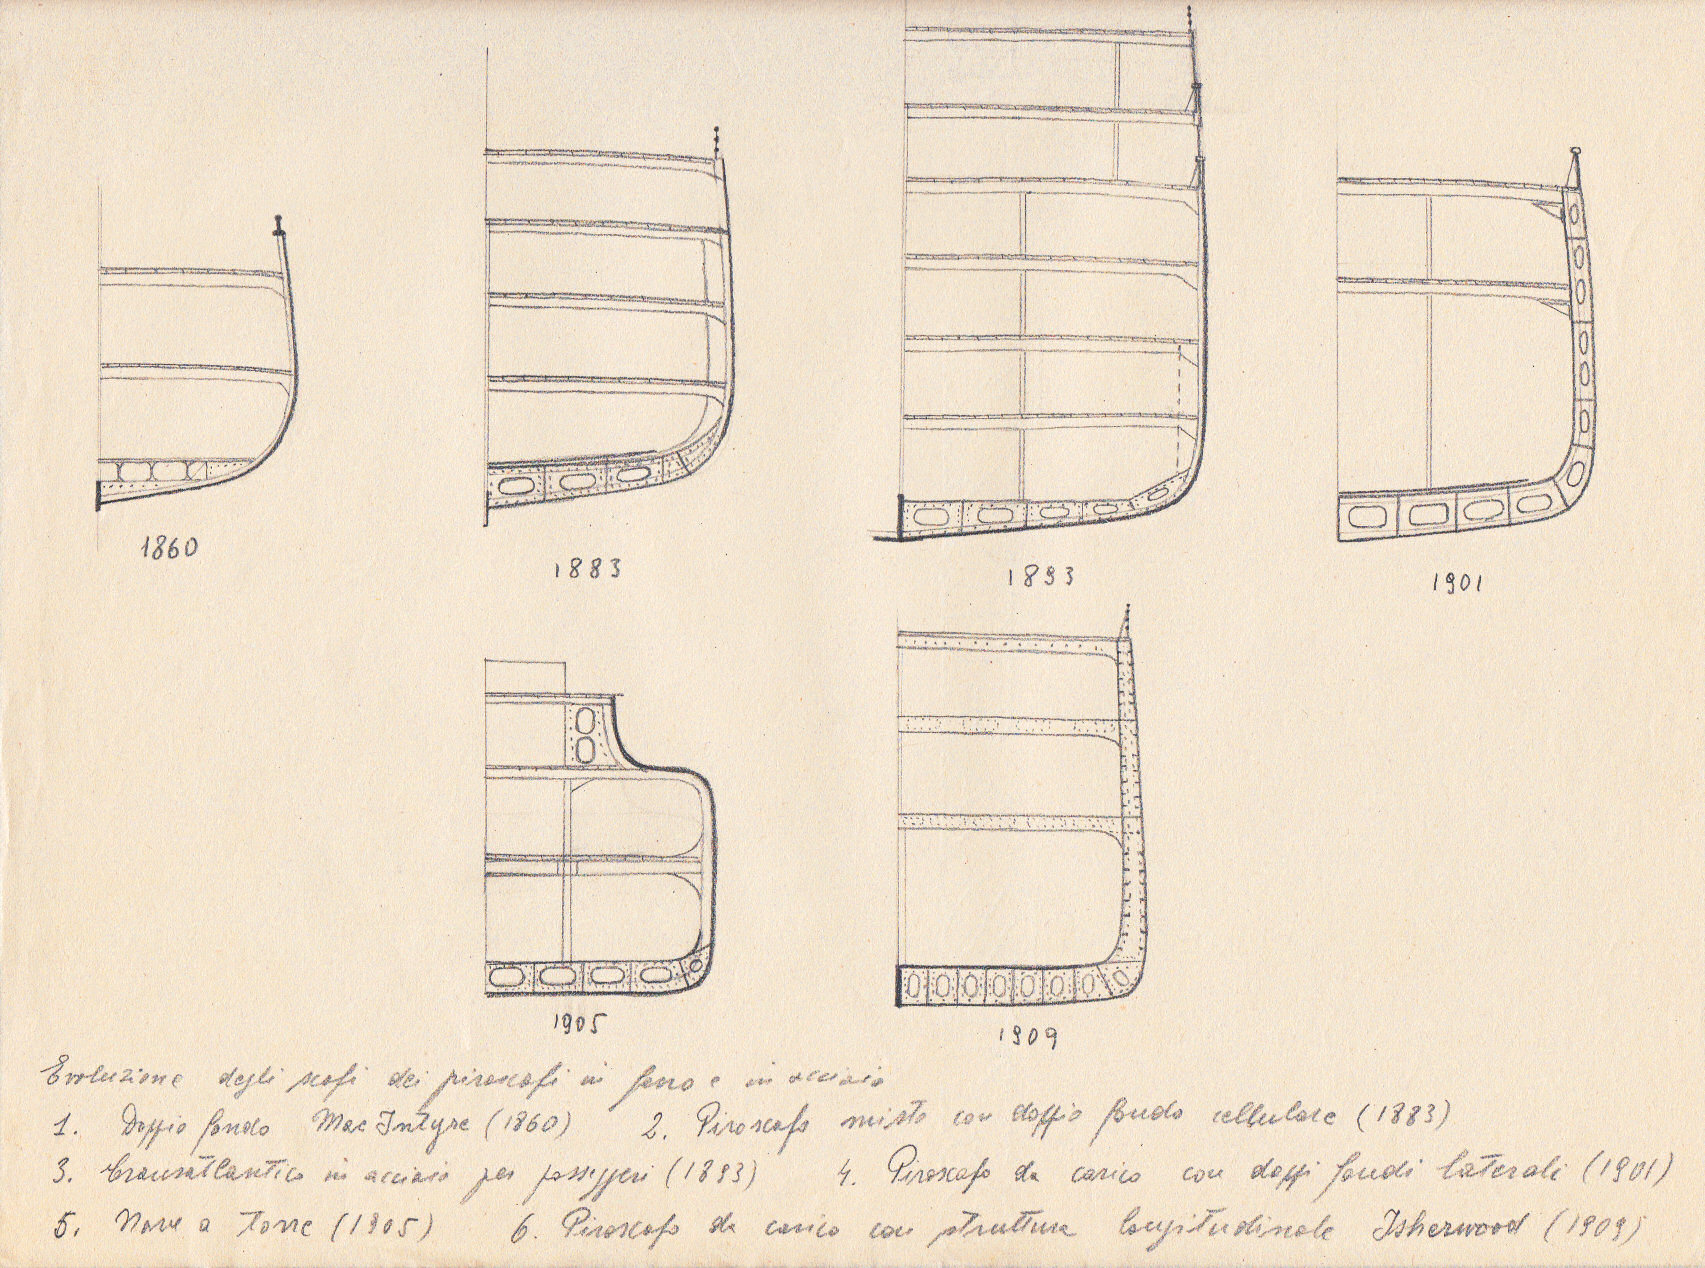 1860
1883
1893
1901
1905
1909
Evoluzione degli scafi dei piroscafi in ferro e in acciaio
1. Doppio fondo MacIntyre (1860) 2. Piroscafo misto con doppio fondo cellulare (1883)
3. Transatlantico in acciaio per passeggeri (1893) 4. Piroscafo da carico con doppi fondi laterali (1901)
5. Nave a torre (1905) 6. Piroscafo da carico con struttura longitudinale Isherwood (1909)